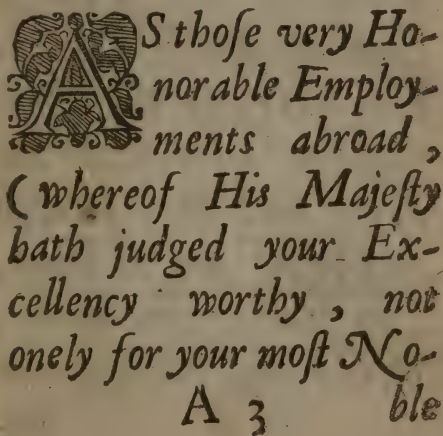 AS thoſe very Ho-
norable Employ-
ments abroad,
(whereof His Majeſty
hath judged your Ex-
cellency worthy, not
onely for your moſt No-
A 3 ble